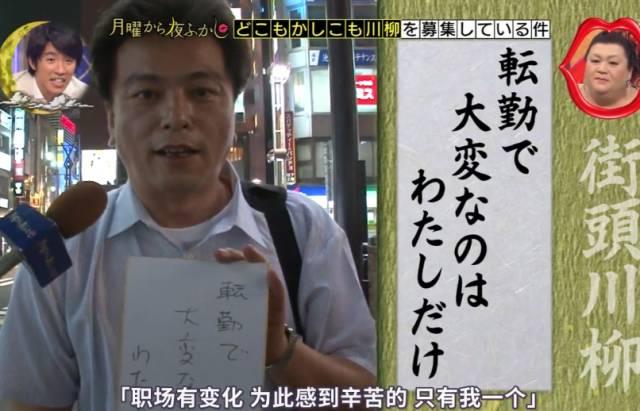 月曜から夜ふかし
どこもかしこも川柳を募集している件
転勤で
大変なのは
わたしだけ
街頭川柳
転勤で
大変な
わた
「职场有变化 为此感到辛苦的 只有我一个」